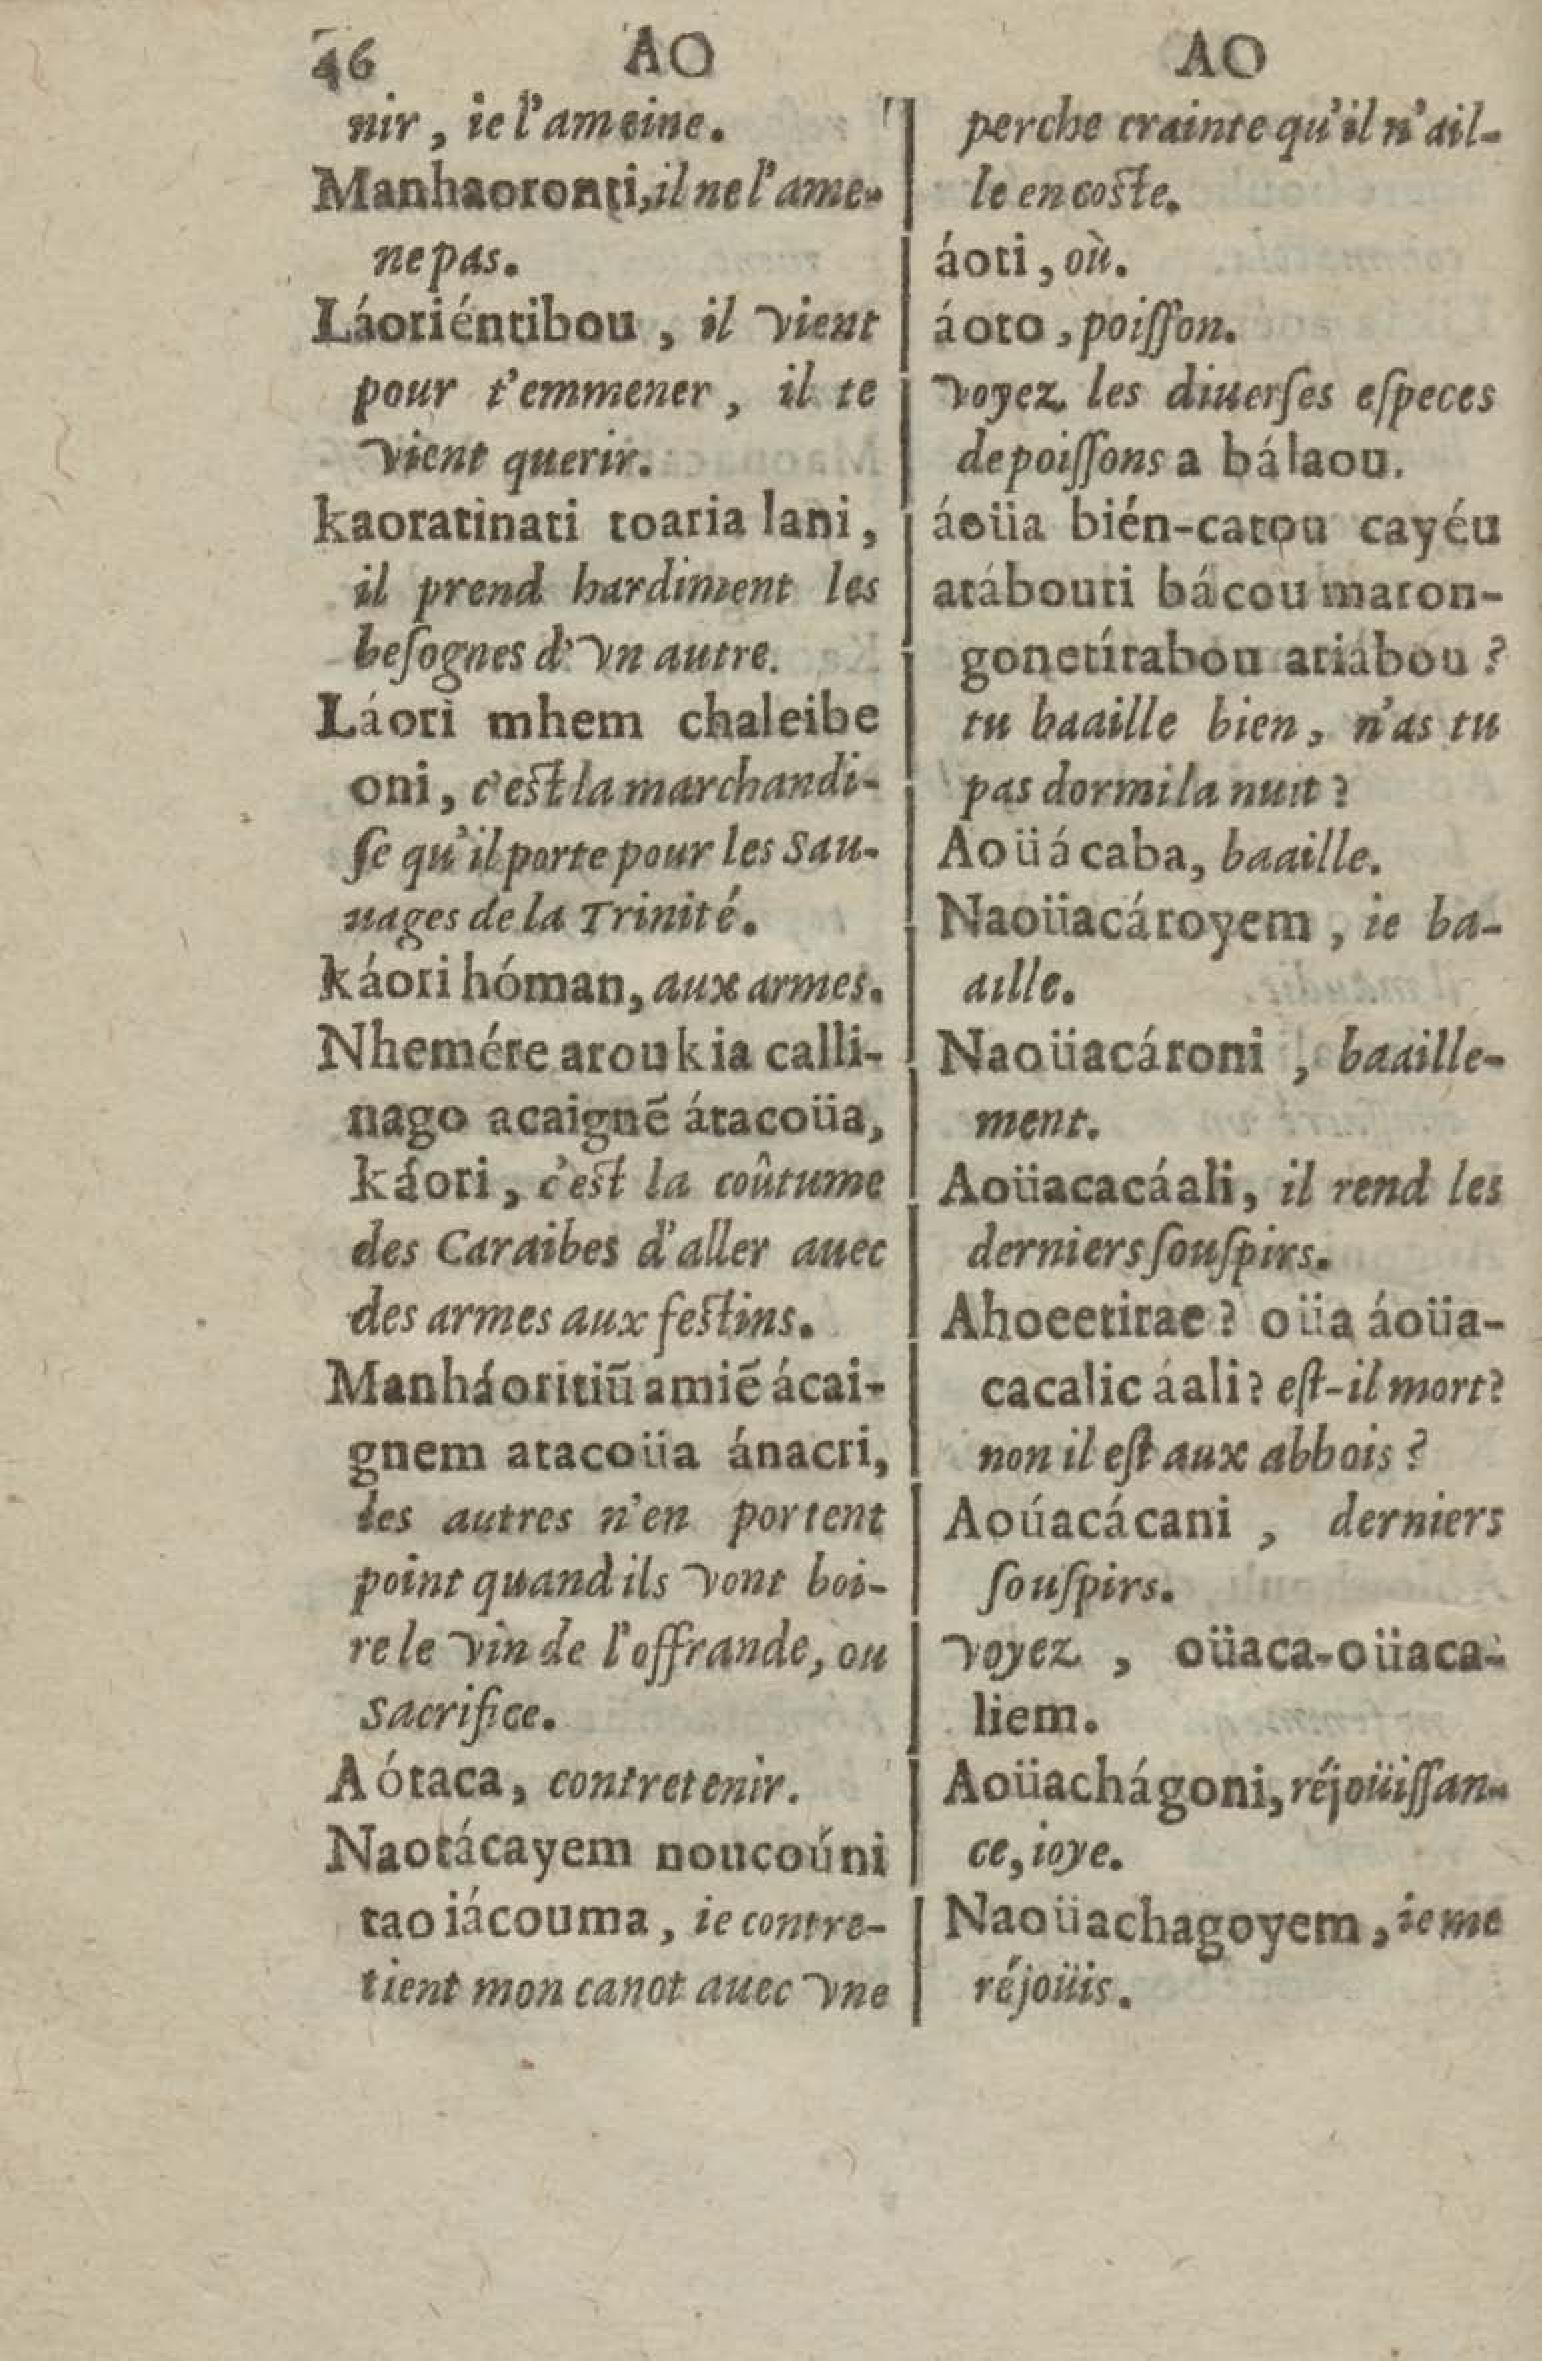 46 AO AO
nir, ie l'ameine.
Manhaoronti, il ne l'ame-
ne pas.
Láoriéntibou, il vient
pour t'emmener, il te
vient querir.
kaoratinati toaria lani,
il prend hardiment les
beſognes d'vn autre.
Láori mhem chaleibe
oni, c'eſt la marchandi-
ſe qu'il porte pour les Sau-
uages de la Trinité.
káori hóman, aux armes.
Nhemére aroukia calli-
nago acaignẽ átacoüa,
káori, c'eſt la coûtume
des Caraibes d'aller auec
des armes aux feſtins.
Manháoritiũ amiẽ ácai-
gnem atacoüa ánacri,
les autres n'en portent
point quand ils vont boi-
re le vin de l'offrande, ou
Sacrifice.
Aótaca, contretenir.
Naotácayem noucoúni
tao iácouma, ie contre-
tient mon canot auec vne
perche crainte qu'il n'ail-
le en coſte.
áoti, où.
áoto, poiſſon.
voyez les diuerſes eſpeces
de poiſſons a bálaou.
áoüa bién-catou cayéu
atábouti bácou maron-
gonetítabou atiábou?
tu baaille bien, n'as tu
pas dormi la nuit?
Aoüácaba, baaille.
Naoüacároyem, ie ba-
aille.
Naoüacároni, baaille-
ment.
Aoüacacáali, il rend les
derniers ſouſpirs.
Ahoeetitae? oüa áoüa-
cacalic áali? eſt-il mort?
non il eſt aux abbois?
Aoúacácani, derniers
ſouſpirs.
voyez, oüaca-oüaca-
liem.
Aoüachágoni, réjoüiſſan-
ce, ioye.
Naoüachagoyem, ie me
réjoüis.